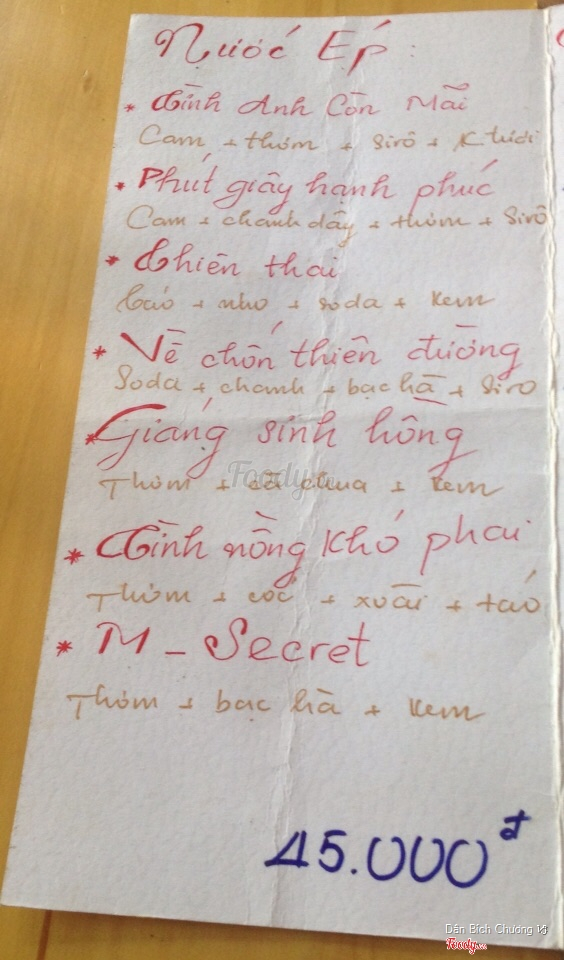 Nước Ép :
* Tình Anh Còn Mãi
Cam + thơm + sirô + K tươi
* Phút giây hạnh phúc
Cam + chanh dây + thơm + Sirô
* Thiên thai
táo + nho + soda + kem
* Về chốn thiên đường
Soda + chanh + bạc hà + Siro
* Giáng sinh hồng
Thơm + cà chua + kem
* Tình nồng khó phai
Thơm + cóc + xoài + táo
* M - Secret
Thơm + bạc hà + kem
45.000đ
Foody.vn
Dân Bích Chương
Foody.vn